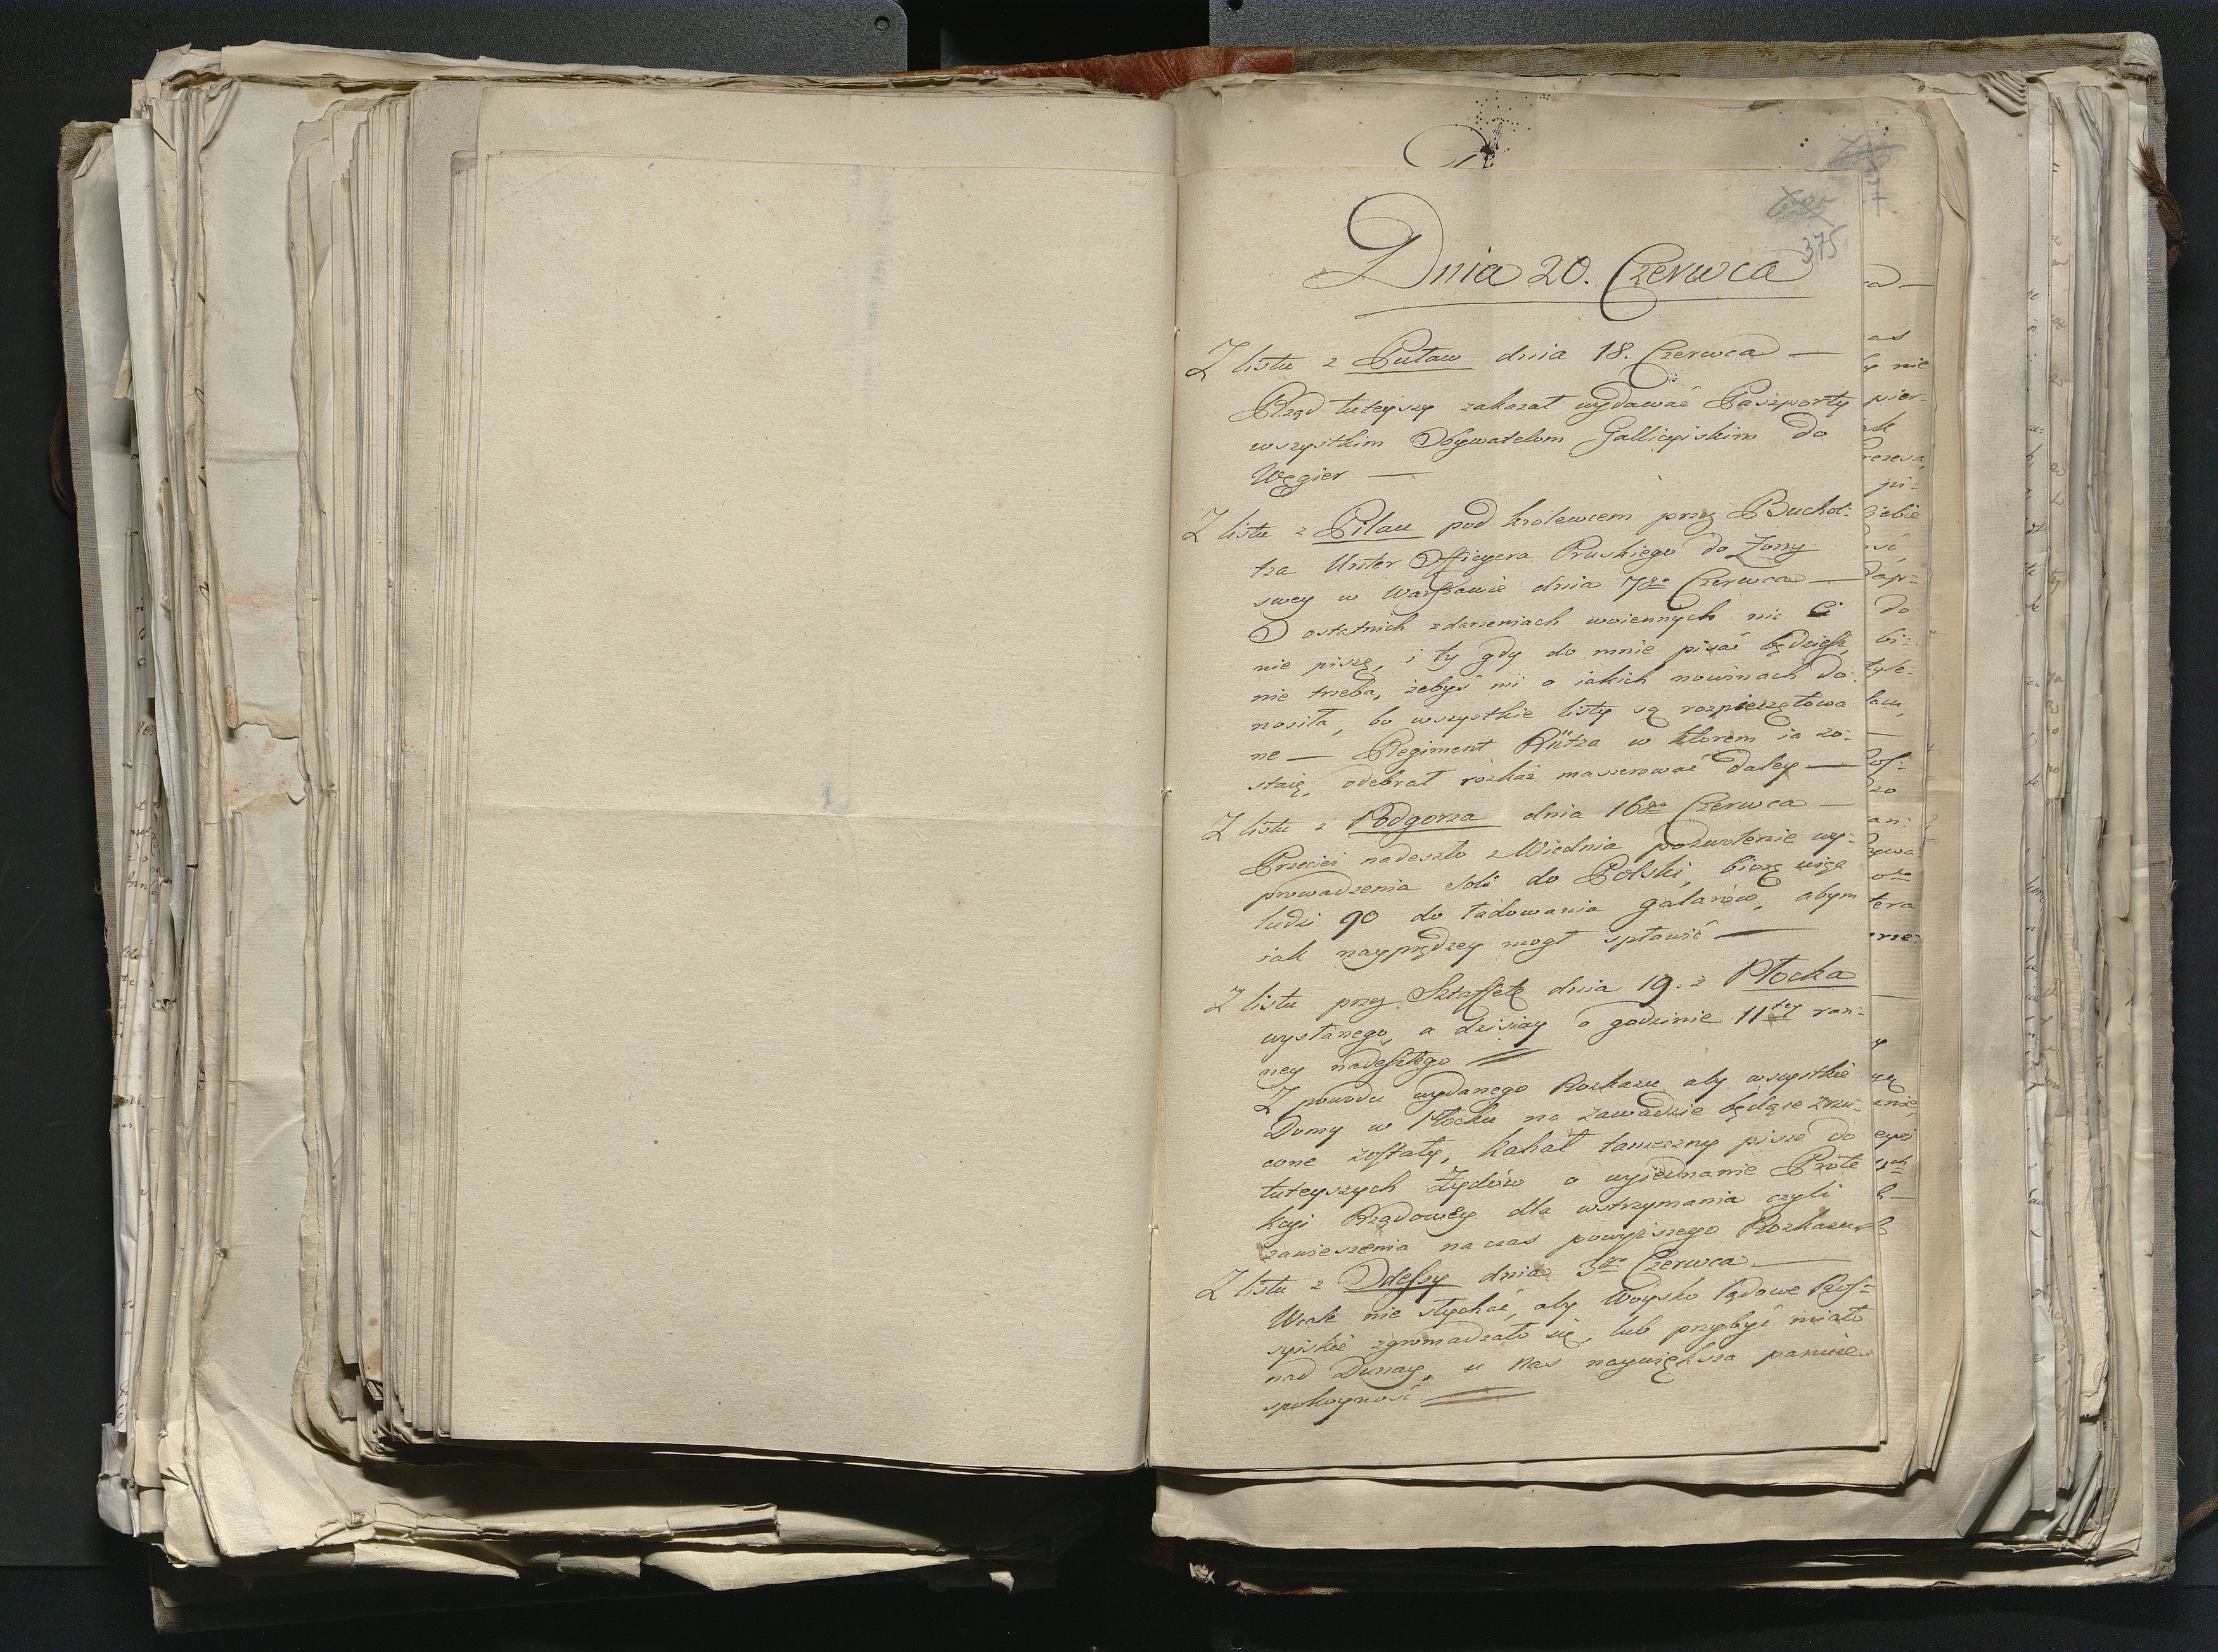 375
Dnia 20. Czerwca
Z listu z Puław dnia 18. Czerwca —
Rząd tuteyszy zakazał wydawać Paszporty
wszystkim Obywatelom Gallicyiskim do
Węgier —
Z listu z Pilau pod Królewcem przez Buchol-
tza Unter Officyera Pruskiego do Żony
swey w Warszawie dnia 7go Czerwca —
O ostatnich zdarzeniach woiennych nic Ci
nie piszę, i ty gdy do mnie pisać będziesz,
nie trzeba, żebyś mi o iakich nowinach do-
nosiła, bo wszystkie listy są rozpieczętowa
ne — Regiment Rütza w którem ia zo-
staię, odebrał rozkaz maszerować daley —
Z listu z Podgorza dnia 16go Czerwca —
Przecież nadeszło z Wiednia pozwolenie wy-
prowadzenia soli do Polski, biorę więc
ludzi 90 do ładowania galarów, abym
iak nayprędzey mogł spławić —
Z listu przez Sztaffetę dnia 19. z Płocka
wysłanego, a dzisiay o godzinie 11tey ran-
ney nadeszłego
Z powodu wydanego Rozkazu aby wszystkie
Domy w Płocku na zawadzie będące zrzu-
cone zostały, Kahał tameczny pisze do
tuteyszych Żydów o wyiednanie Prote
kcyi Rządowey dla wstrzymania czyli
zawieszenia na czas powyższego Rozkazu
Z listu z Odessy dnia 3go Czerwca —
Wcale nie słychać, aby Woysko Lądowe Ros-
syiskie zgromadzało się, lub przybyć miało
nad Dunay, u nas naywiększa panuie
spokoyność